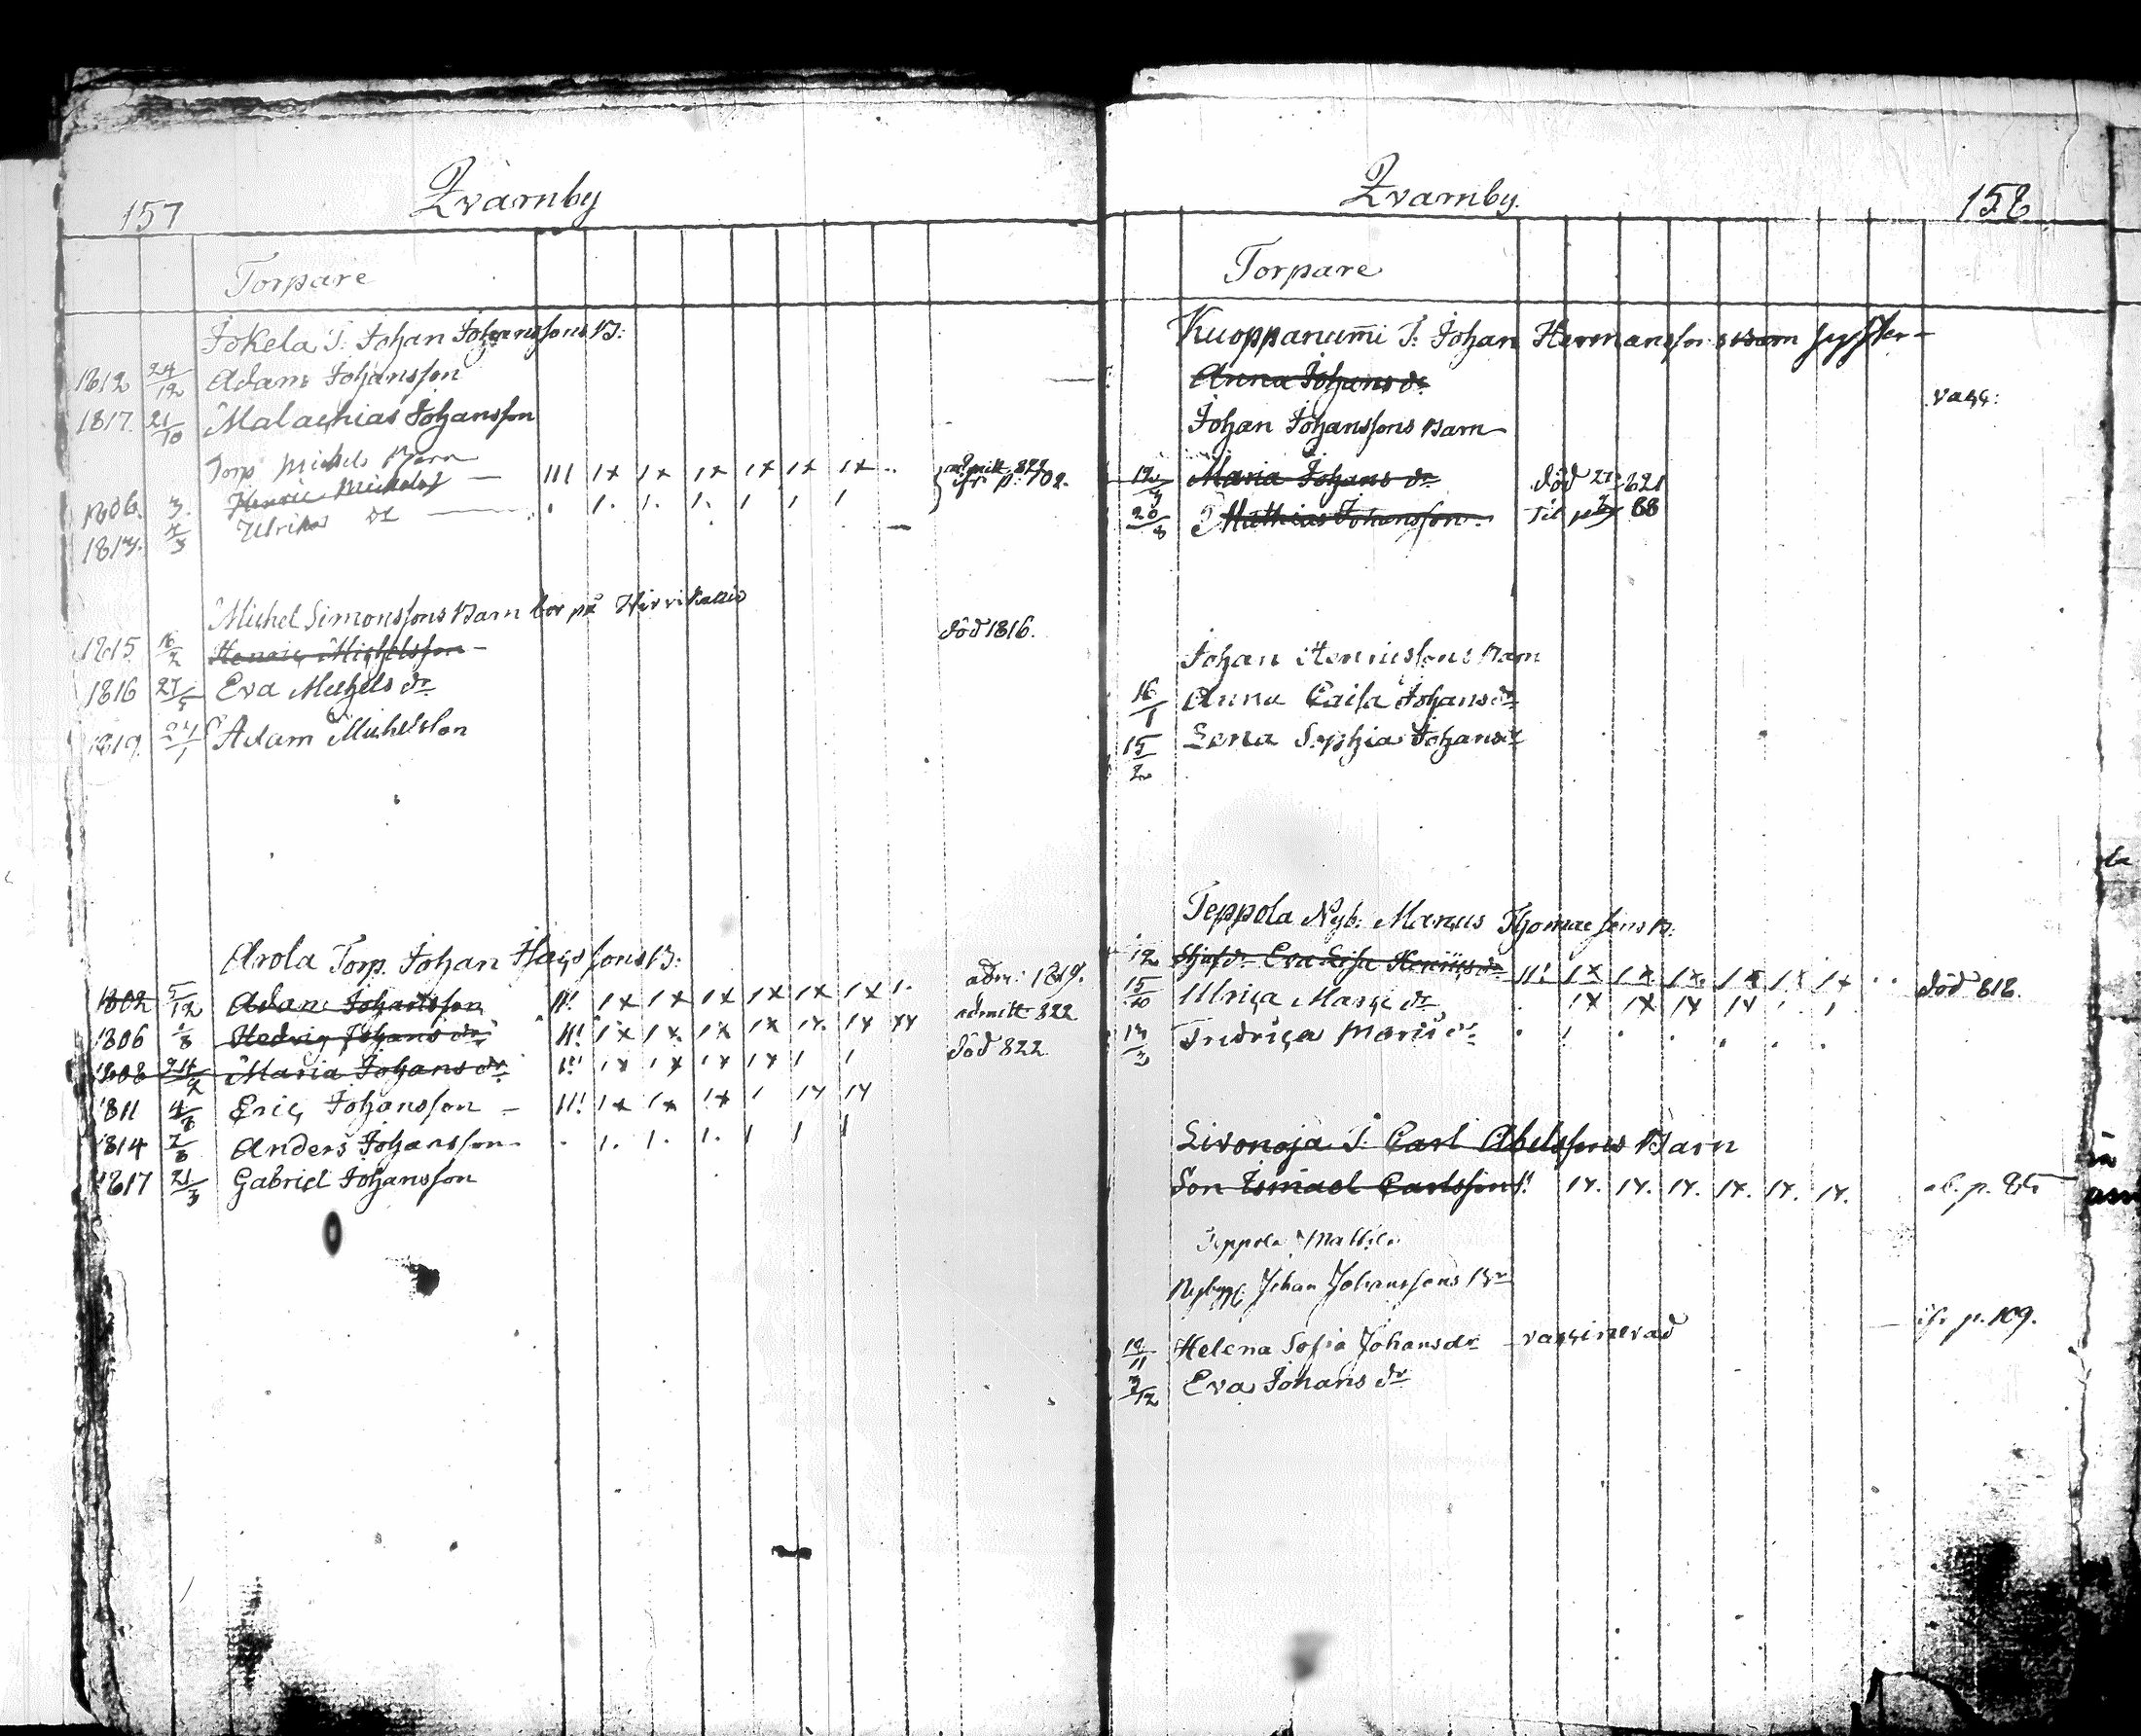 157
Qvarnby
Torpare
Jokela T. Johan Johanssons B:
1812 24/12 Adam Johansson
1817. 21/10 Malachias Johansson
Torp Michels Barn
1806. 3. Henric Michelss — 111 1x 1x 1x 1x 1x 1x .. admitt 822
ifr. p. 102.
1813. 4/3 Ulrika dr — . 1. 1. 1. 1 1 1
Michel Simonssons Barn bor på Hirvikallio
1815 16/2 Henric Michelsson - död 1816.
1816 27/5 Eva Michels dr
1819. 24/1 Adam Michelsson
Arola Torp. Johan Hacssons B:
1802 5/12 Adam Johansson 11! 1x 1x 1x 1x 1x 1x 1. adm: 1819.
1806 1/8 Hedvig Johans dr 11! 1x 1x. 1x 1x 1x. 1x xx admitt 822
1808 24/2 Maria Johans dr 1!! 1x 1x 1x 1x 1 1 död 822
1811 4/8 Eric Johansson - 11! 1x 1x 1x 1 1x 1x
1814 2/8 Anders Johansson - . 1. 1. 1. 1 1 1
1817 21/3 Gabriel Johansson
Qvarnby.
158
Torpare
Kuoppanumi T: Johan Hermanssons Barn syster -
Anna Johans dr vacc:
Johan Johanssons Barn
Maria Johans dr död 821
20/8 Mathias Johansson. Til 88
Johan Henricssons Barn
16/1 Anna Caisa Johans dr
15/2 Lena Sophia Johans dr
Teppola Nyb: Marcus Thomaessons B:
12 Styfdr. Eva Lisa Henricsdr 11! 1x 1x 1x. 1x 1x 1x .. död 818.
15/10 Ulrica Marcs dr . 1x 1x 1x 1x 1. 1.
13/3 Fredrica Marcs dr . 1 . . . . .
Livonoja T: Carl Abelssons Barn
Son Ismael Carlsson 1x. 1x. 1x. 1x. 1x. 1x. ab. p. 85
Teppola Mattila
Nybygg. Johan Johanssons Br
18/11 Helena Sofia Johansdr - vaccinerad — ifr p. 109.
3/12 Eva Johans dr